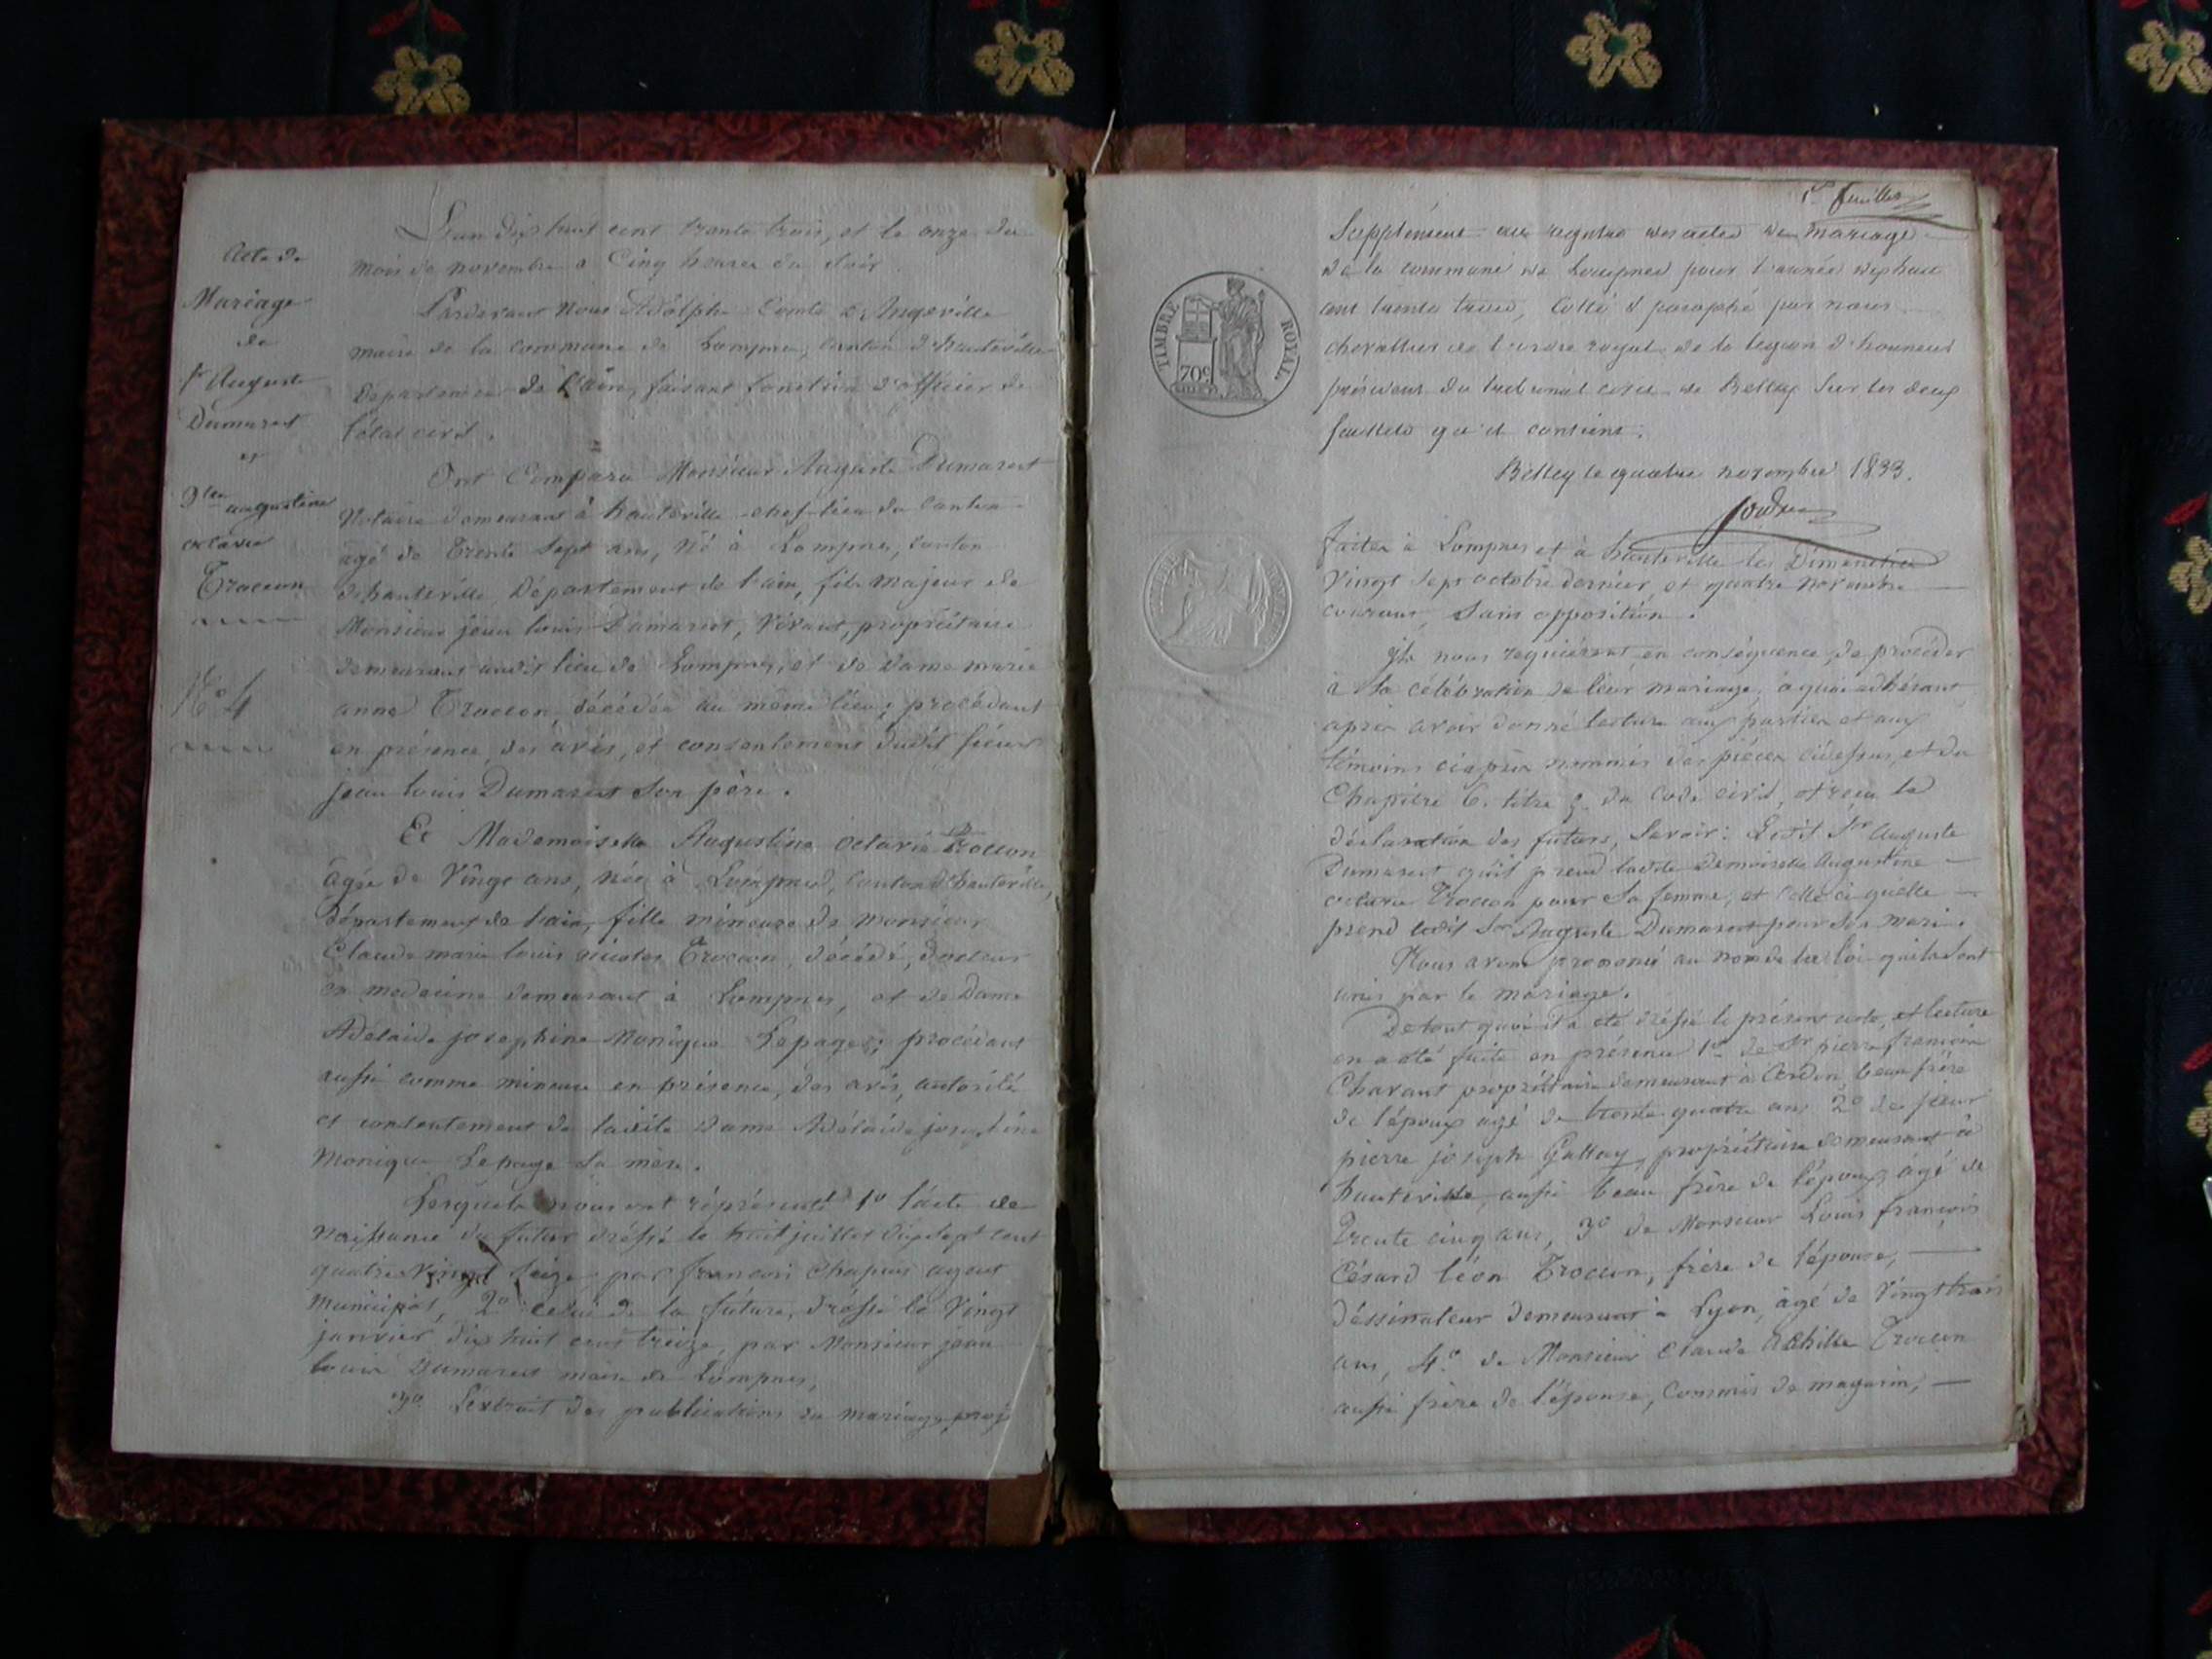 Acte de
Mariage
de
Sr Auguste
Dumarest
et
Dlle augustine
octavie
Troccon
N° 4
L'an dix huit cent trente trois, et le onze du
mois de novembre à Cinq heures du Soir
Pardevant Nous Adolphe Comte d'Angeville
maire de la commune de Lompnes, Canton d'hauteville
Département de l'ain, faisant fonction d'officier de
l'état civil.
Ont Comparu Monsieur Auguste Dumarest
Notaire demeurant à hauteville chef-lieu du Canton
agé de Trente Sept ans, Né à Lompnes, Canton
d'hauteville, Département de l'ain, fils majeur de
Monsieur jean louis Dumarest, Vivant, propriétaire
demeurant audit lieu de Lompnes, et de Dame marie
anne Troccon, décédée au même lieu; procédant
en présence, des avis, et consentement dudit sieur
jean louis Dumarest son père.
Et Mademoiselle Augustine octavie Troccon
âgée de Vingt ans, née à Lompnes, Canton d'hauteville,
Département de l'ain, fille mineure de Monsieur
Claude marie louis nicolas Troccon, décédé, docteur
en medecine demeurant à Lompnes, et de Dame
Adélaïde josephine Monique Lepage; procédant
aussi comme mineure en présence, des avis, autorité
et consentement de ladite Dame Adélaïde josephine
Monique Lepage sa mère.
Lesquels nous ont réprésenté 1° l'acte de
naissance du futur dréssé le huit juillet dix sept cent
quatre vingt seize par francois Chapuis agent
municipal, 2° celui de la future, dréssé le Vingt
janvier dix huit cent treize, par Monsieur jean
louis Dumarest maire de Lompnes,
3° L'extrait des publications du mariage projeté
1er feuillet
TIMBRE ROYAL
70c
Supplément au registre des actes de mariage
de la commune de Lompnes pour l'année dix huit
cent trente trois, Cotté & paraphé par nous
chevallier de l'ordre royal de la légion d'honneur
président du tribunal civil de Belley sur les deux
feuillets qu'il contient.
Belley le quatre novembre 1833.
faites à Lompnes et à hauteville les Dimanches
Vingt Sept octobre dernier, et quatre novembre
courant, sans opposition.
Ils nous requièrent, en conséquence, de procéder
à la célébration de leur mariage, à quoi adhérant
après avoir donné lecture aux parties et aux
témoins ciaprès nommés des pièces cidessus, et du
Chapitre 6. titre 5. du Code civil, et reçu la
déclaration des futurs, Savoir: Ledit Sr Auguste
Dumarest qu'il prend ladite Demoiselle Augustine
octavie Troccon pour sa femme, et Celle ci qu'elle
prend ledit Sr Auguste Dumarest pour son mari.
Nous avons prononcé au nom de la loi qu'ils sont
unis par le mariage.
De tout quoi il a été dréssé le présent acte, et lecture
en a été faite en présence 1° de Sr pierre francois
Chavant propriétaire demeurant à Cerdon beau frère
de l'époux agé de trente quatre ans 2° de sieur
pierre joseph Gallay propriétaire demeurant à
hauteville, aussi beau frère de l'époux, âgé de
Trente cinq ans, 3° de Monsieur Louis françois
Césard léon Troccon, frère de l'épouse,
déssinateur demeurant à Lyon, âgé de Vingt trois
ans, 4° de Monsieur Claude achille Troccon
aussi frère de l'épouse, Commis de magasin,